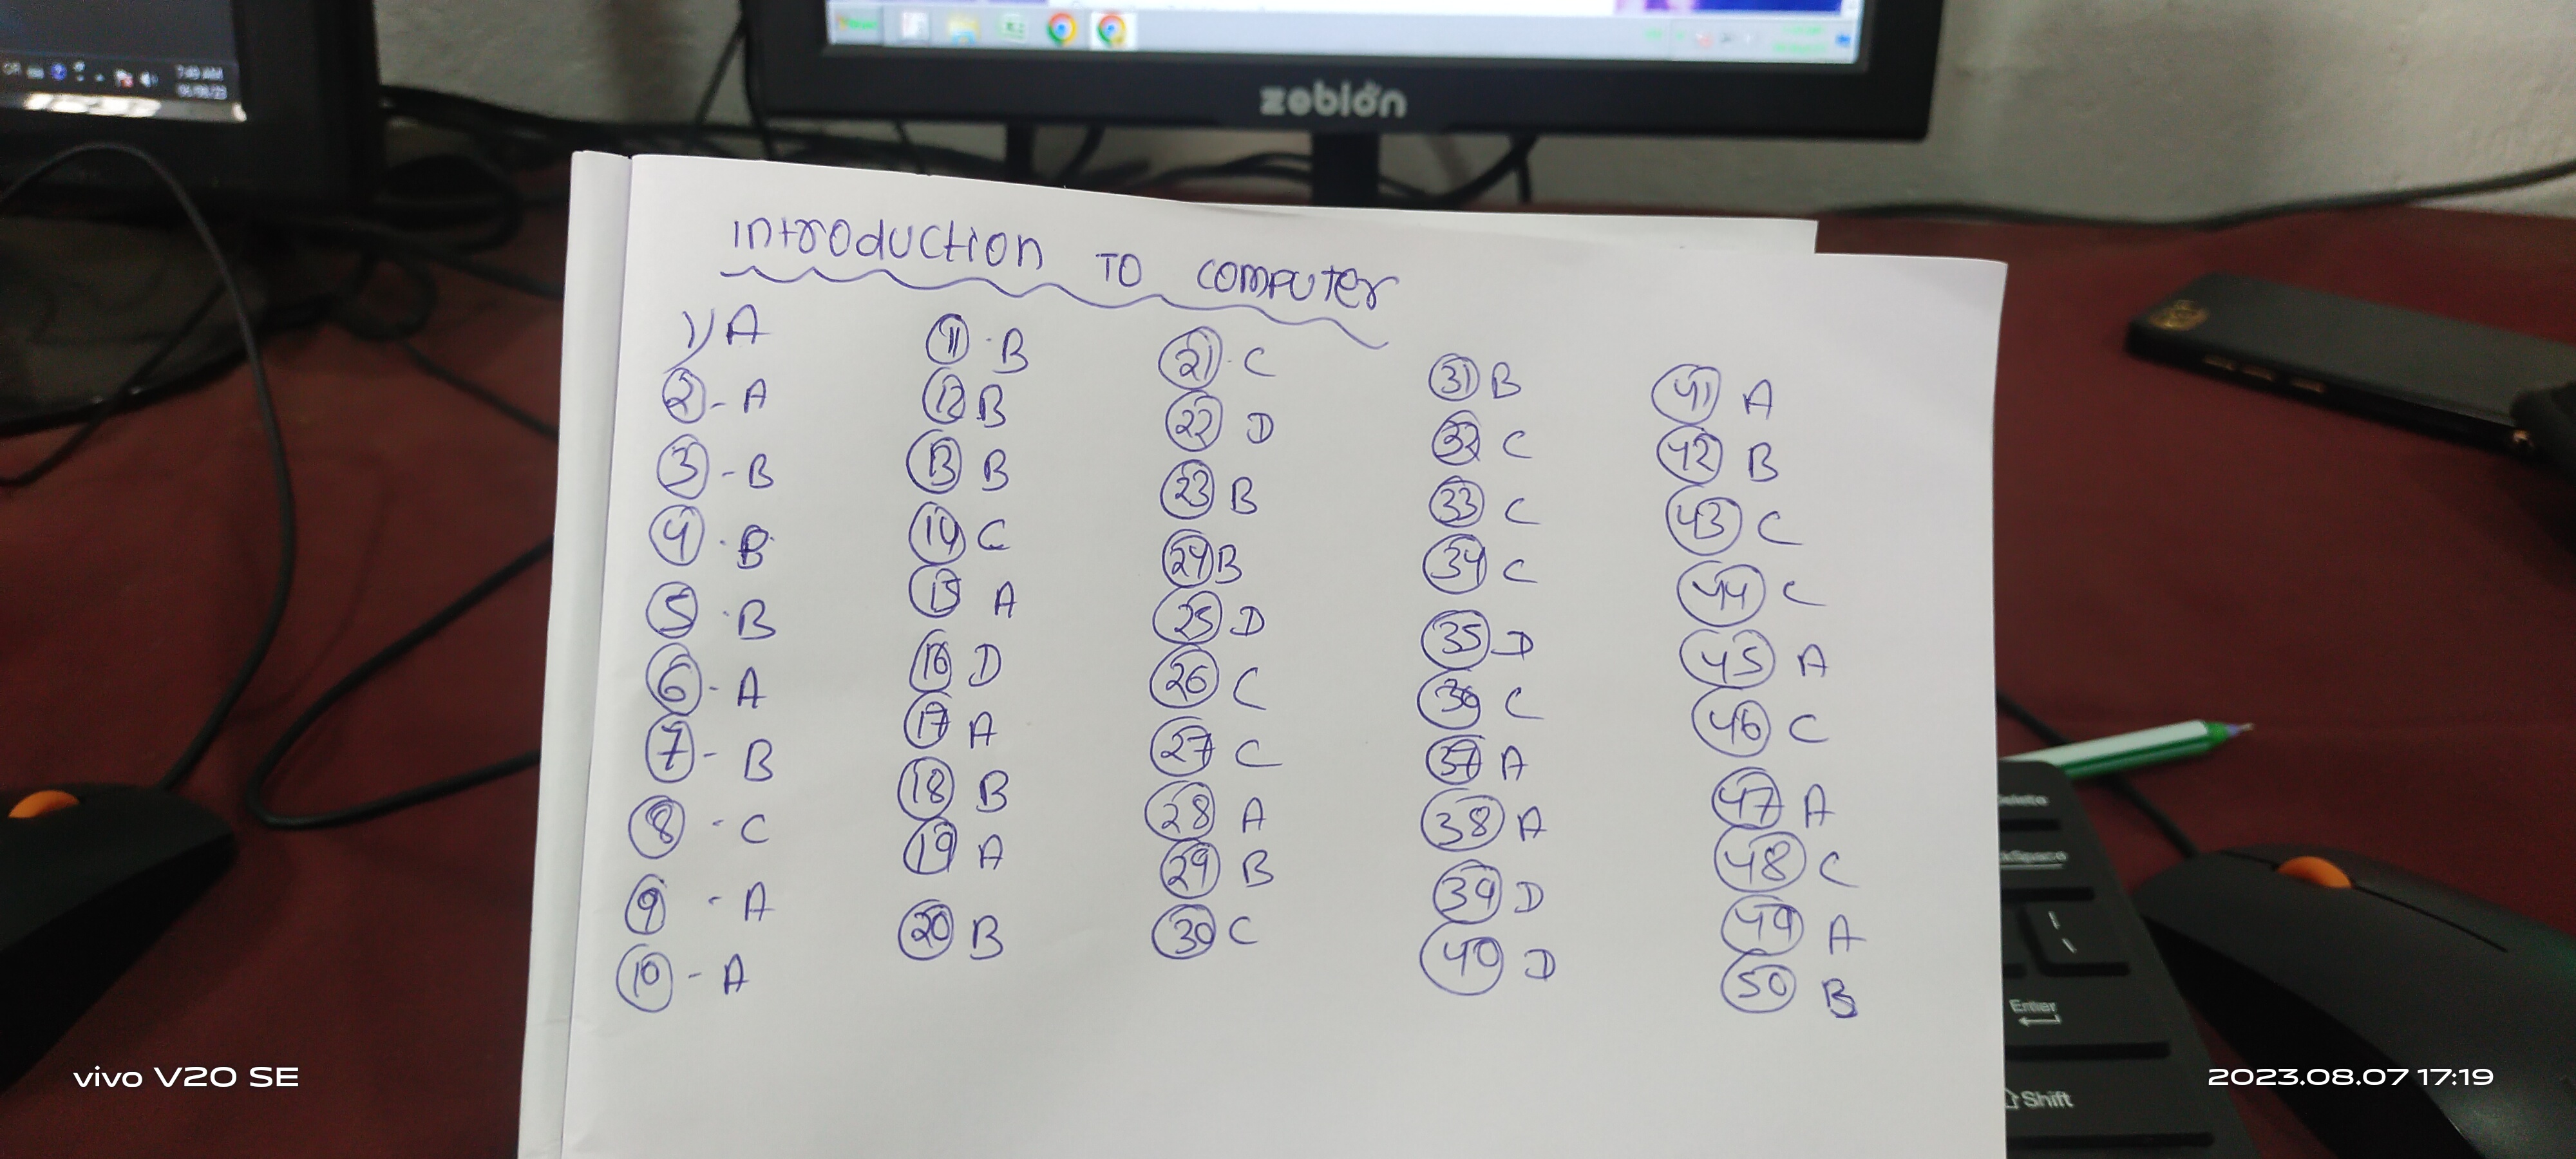 7:49 AM
zebion
introduction TO computer
1) A
2 - A
3 - B
4 . B
5 . B
6 - A
7 - B
8 - C
9 - A
10 - A
11 . B
12 B
13 B
14 C
15 A
16 D
17 A
18 B
19 A
20 B
21 . C
22 D
23 B
24 B
25 D
26 C
27 C
28 A
29 B
30 C
31 B
32 C
33 C
34 C
35 D
36 C
37 A
38 A
39 D
40 D
41 A
42 B
43 C
44 C
45 A
46 C
47 A
48 C
49 A
50 B
Enter
Shift
vivo V20 SE
2023.08.07 17:19